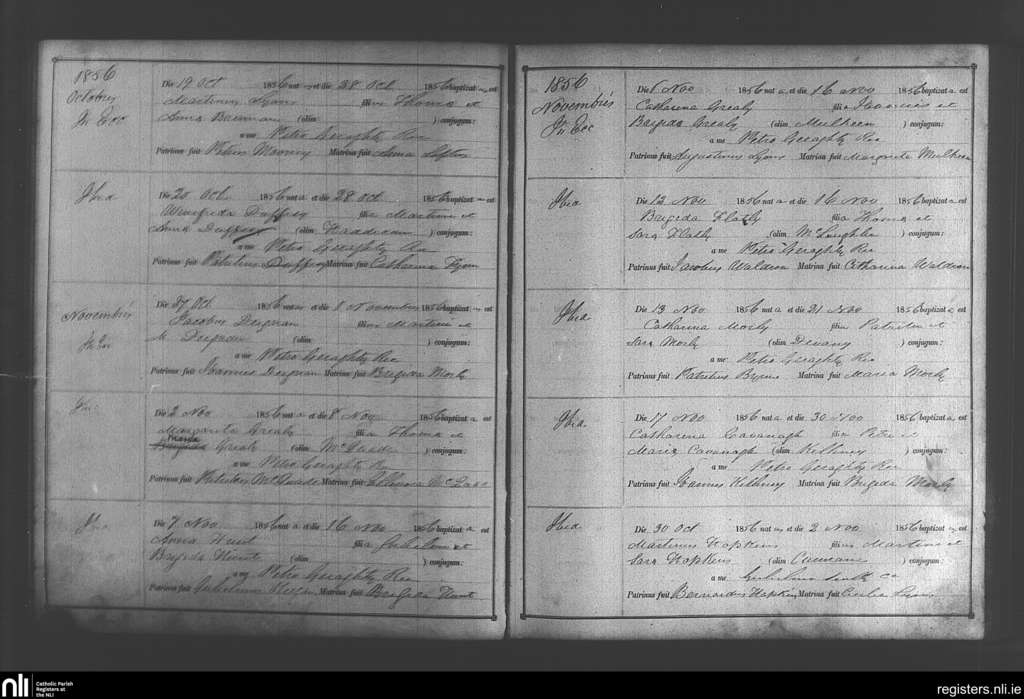 1856
Octobris
In Ecc
Die 19 Oct 1856 nat us et die 28 Oct 1856 baptizat us est
Martinus Lyons filius Thoma et
Anna Brennan (olim ) conjugum:
a me Petro Geraghty Rec
Patrinus fuit Petrus Mooney Matrina fuit Anna
Ibid
Die 20 Oct 1856 nat a et die 28 Oct 1856 baptizat est
Winifrida Duffey filia Martinus et
Anna Duffey (olim ) conjugum:
a me Petro Geraghty Rec
Patrinus fuit Patritius Duffey Matrina fuit Catharina Lyons
Novembris
In Ecc
Die 27 Oct 1856 nat us et die 8 Novembris 1856 baptizat us est
Jacobus Deignan filius Martinus et
Deignan (olim ) conjugum:
a me Petro Geraghty Rec
Patrinus fuit Joannes Deignan Matrina fuit Brigida Morly
Die 2 Nov 1856 nat a et die 8 Nov 1856 baptizat a est
Margarita Grealy filia Thoma et
Maria
Brigida Grealy (olim McDade ) conjugum:
a me Petro Geraghty Rec
Patrinus fuit Patritius McDade Matrina fuit Ellenora McDade
Ibid
Die 7 Nov 1856 nat a et die 16 Nov 1856 baptizat a est
Anna Hunt filia Gulielmus et
Brigida Hunt (olim ) conjugum:
a me Petro Geraghty Rec
Patrinus fuit Gulielmus Matrina fuit Brigida Hunt
1856
Novembris
In Ecc
Die 6 Nov 1856 nat a et die 16 Nov 1856 baptizat a est
Catharina Grealy filia Joannes et
Brigida Grealy (olim Mulkeen ) conjugum:
a me Petro Geraghty Rec
Patrinus fuit Augustinus Lyons Matrina fuit Margarita Mulkeen
Ibid
Die 12 Nov 1856 nat a et die 16 Nov 1856 baptizat a est
Brigida Flatly filia Thoma et
Sara Flatly (olim McLoughlin ) conjugum:
a me Petro Geraghty Rec
Patrinus fuit Jacobus Waldron Matrina fuit Catharina Waldron
Ibid
Die 13 Nov 1856 nat a et die 21 Nov 1856 baptizat a est
Catharina Morly filia Patritius et
Sara Morly (olim Devany ) conjugum:
a me Petro Geraghty Rec
Patrinus fuit Patritius Byrne Matrina fuit Maria Morly
Ibid
Die 17 Nov 1856 nat a et die 30 Nov 1856 baptizat a est
Catharina Cavanagh filia Petri et
Maria Cavanagh (olim Kethney ) conjugum:
a me Petro Geraghty Rec
Patrinus fuit Joannes Kethney Matrina fuit Brigida Morly
Ibid
Die 30 Oct 1856 nat us et die 2 Nov 1856 baptizat us est
Martinus Hopkins filius Martinus et
Sara Hopkins (olim ) conjugum:
a me Gulielmo Scully CC
Patrinus fuit Bernardus Hopkins Matrina fuit Cecilia Lyons
nli Catholic Parish
Registers at
the NLI
registers.nli.ie